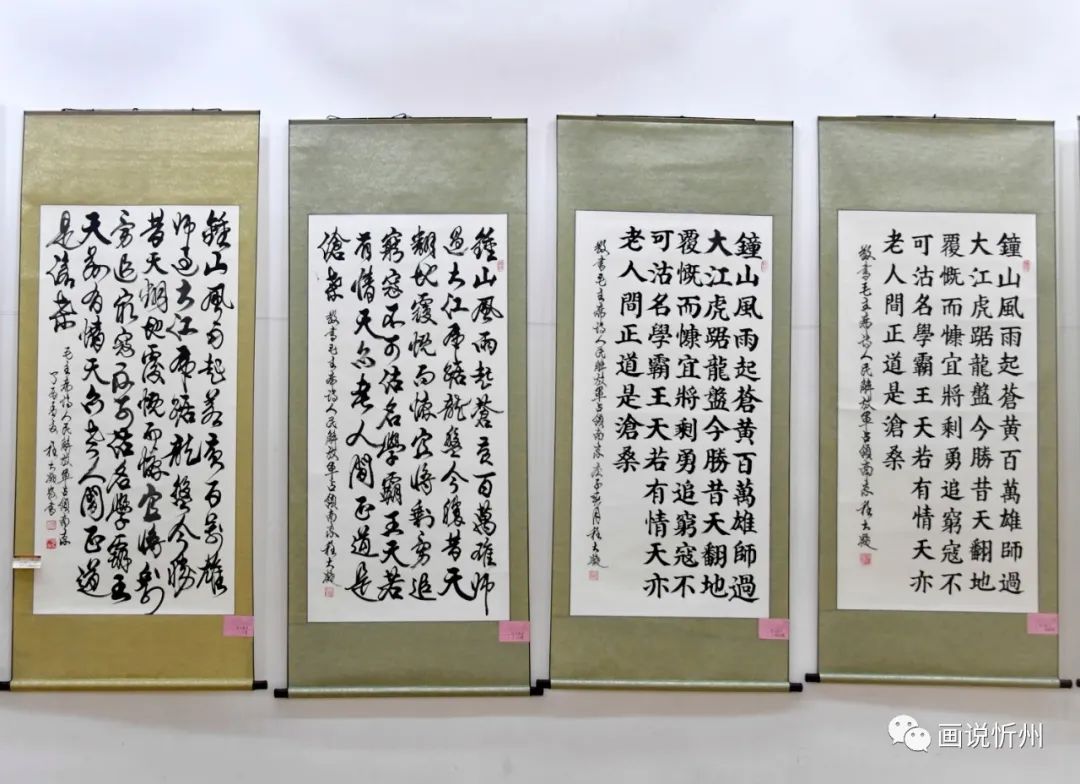 鍾山風雨起蒼黃百萬雄
師過大江虎踞龍盤今勝
昔天翻地覆慨而慷宜將剩
勇追窮寇不可沽名學霸王
天若有情天亦老人間正道
是滄桑
毛主席詩人民解放軍占領南京
鍾山風雨起蒼黃百萬雄師
過大江虎踞龍盤今勝昔天
翻地覆慨而慷宜將剩勇追
窮寇不可沽名學霸王天若
有情天亦老人間正道是
滄桑
敬書毛主席詩人民解放軍占領南京
鐘山風雨起蒼黄百萬雄師過
大江虎踞龍盤今勝昔天翻地
覆慨而慷宜將剩勇追窮寇不
可沽名學霸王天若有情天亦
老人間正道是滄桑
敬書毛主席詩人民解放軍占領南京
鐘山風雨起蒼黄百萬雄師過
大江虎踞龍盤今勝昔天翻地
覆慨而慷宜將剩勇追窮寇不
可沽名學霸王天若有情天亦
老人間正道是滄桑
敬書毛主席詩人民解放軍占領南京
画说忻州